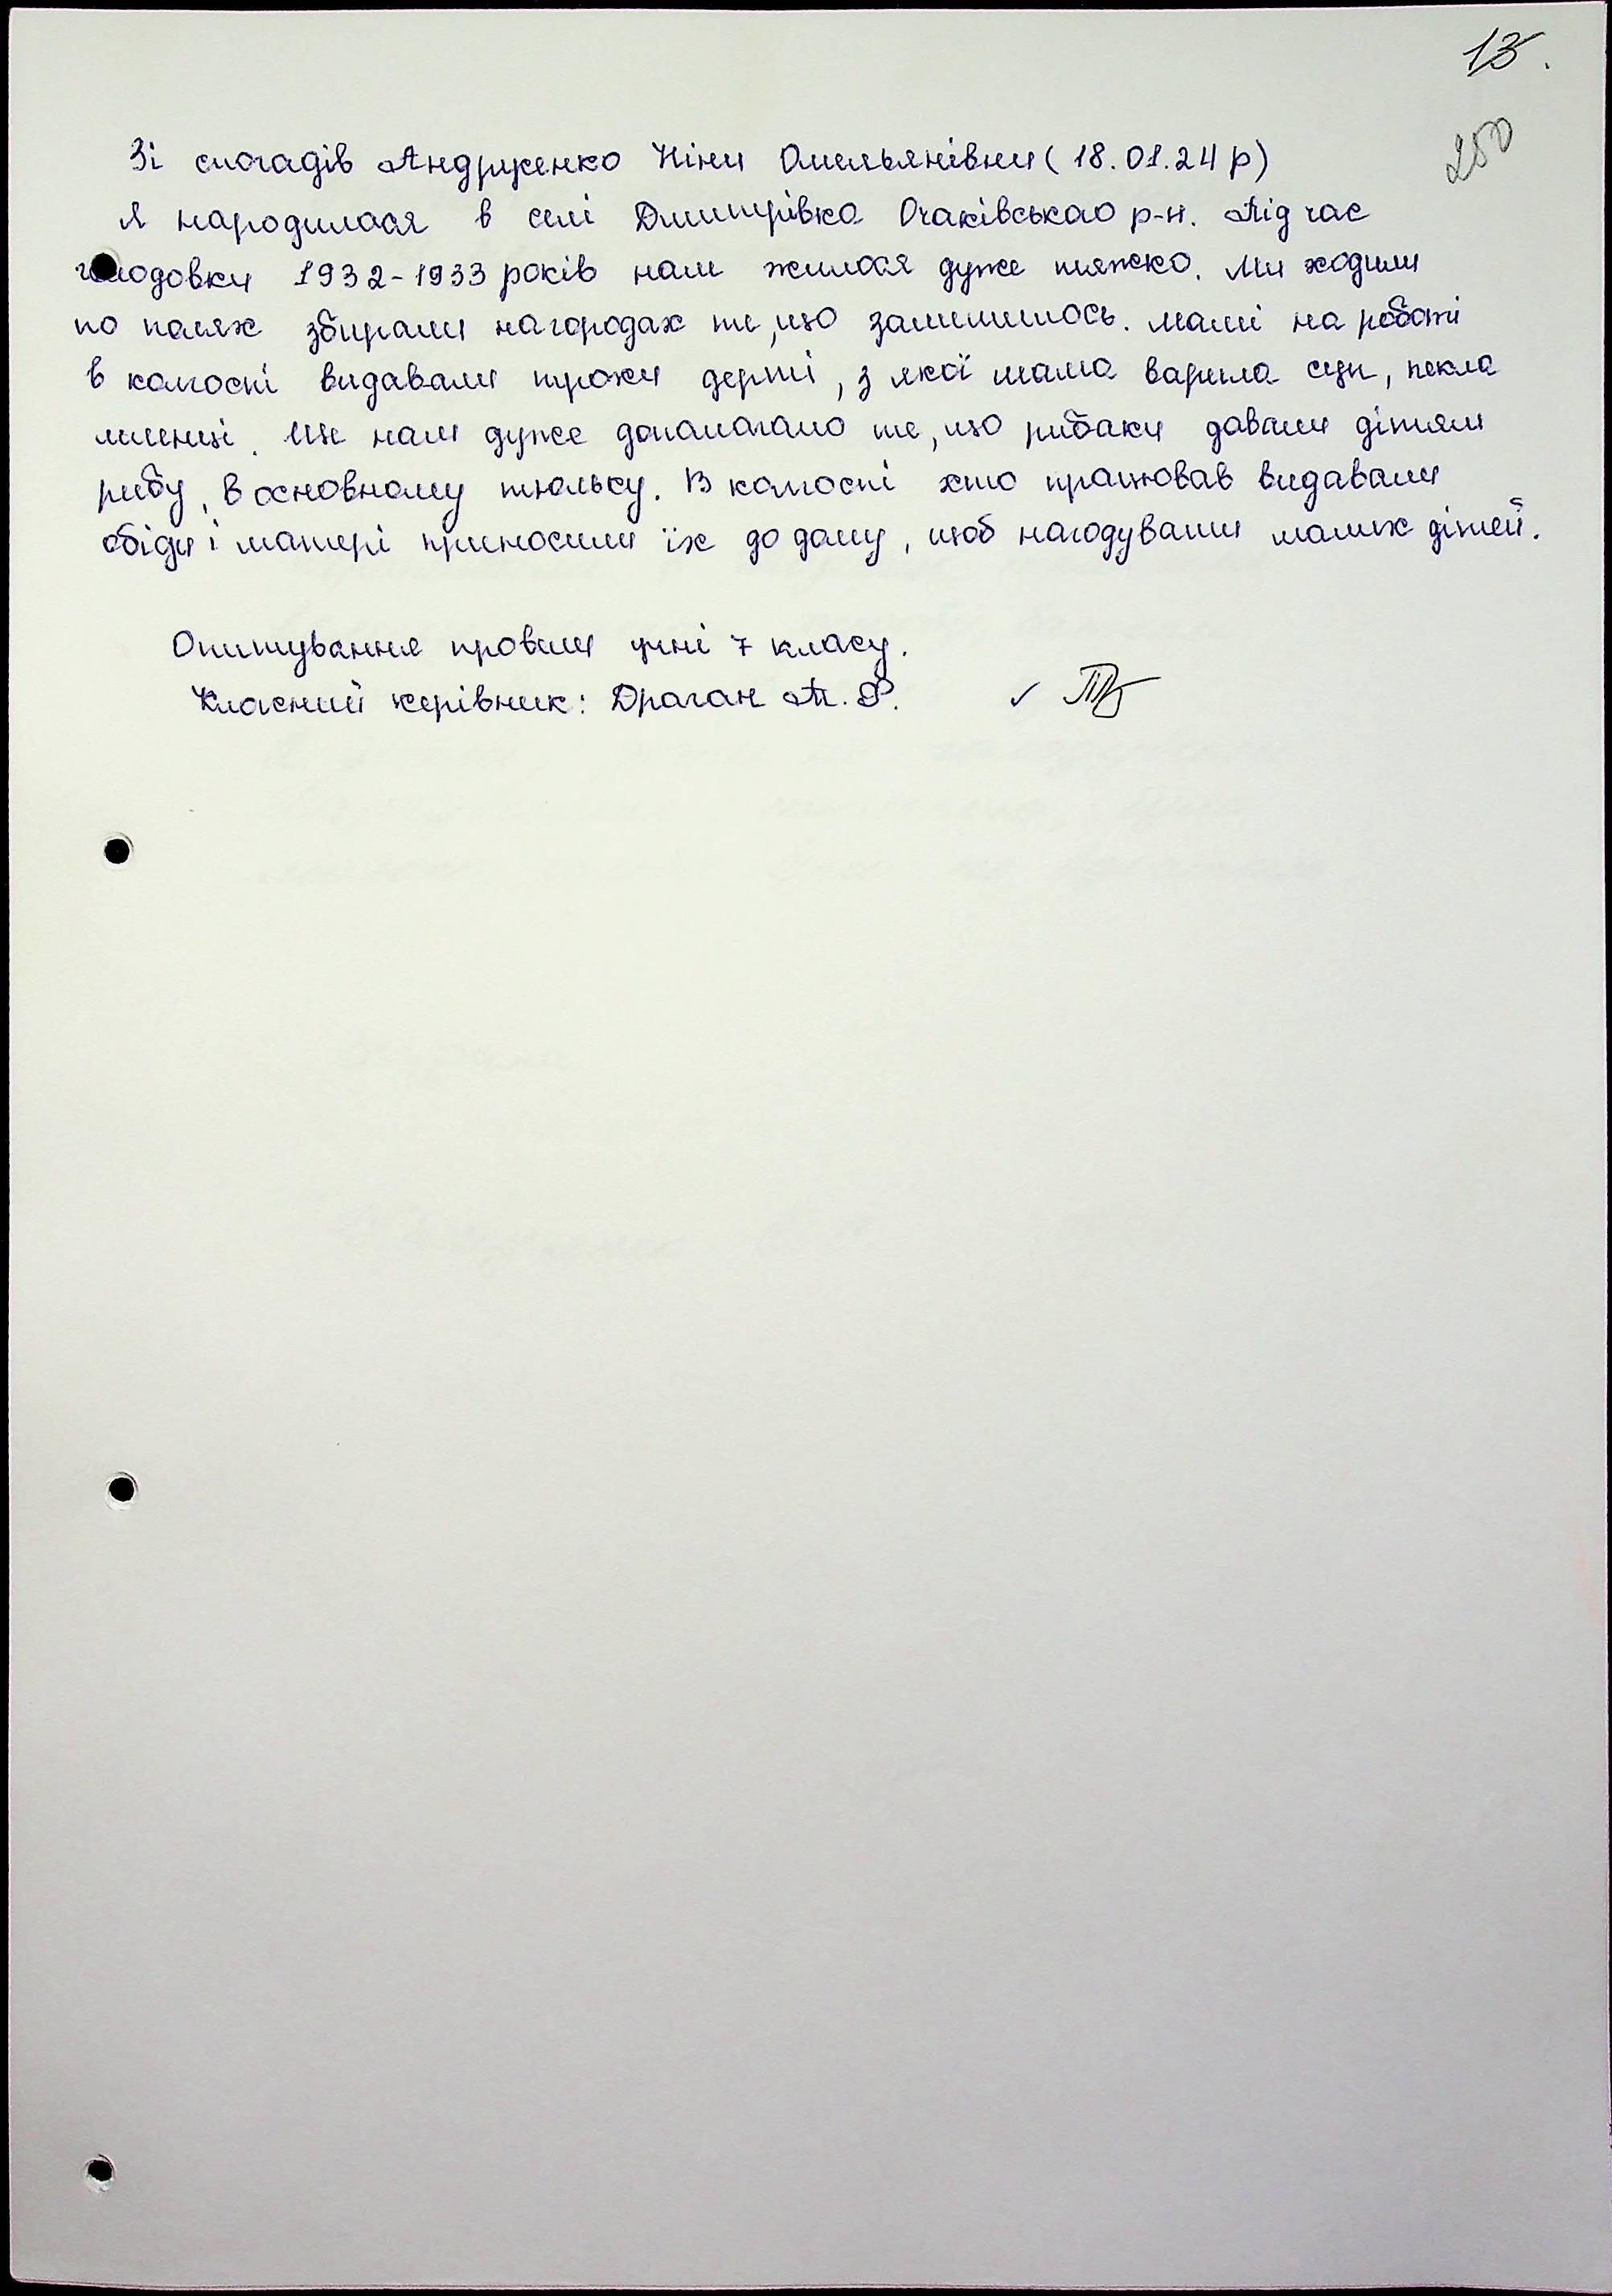 13.
250
Зі спогадів Андрієнко Ніни Омельянівни (18.01.24 р)
Я народилася в селі Дмитрівка Очаківського р-н. Під час
голодовки 1932-1933 років нам жилося дуже тяжко. Ми ходили
по полях збирали на городах те, що залишилось. Мамі на роботі
в колгоспі видавали трохи дерті, з якої мама варила суп, пекла
млинці. Ще нам дуже допомагало те, що рибаки давали дітям
рибу, в основному тюльку. В колгоспі хто працював видавали
обіди і матері приносили їх до дому, щоб нагодувати малих дітей.
Опитування провели учні 7 класу.
Класний керівник: Драган Т. Ф.